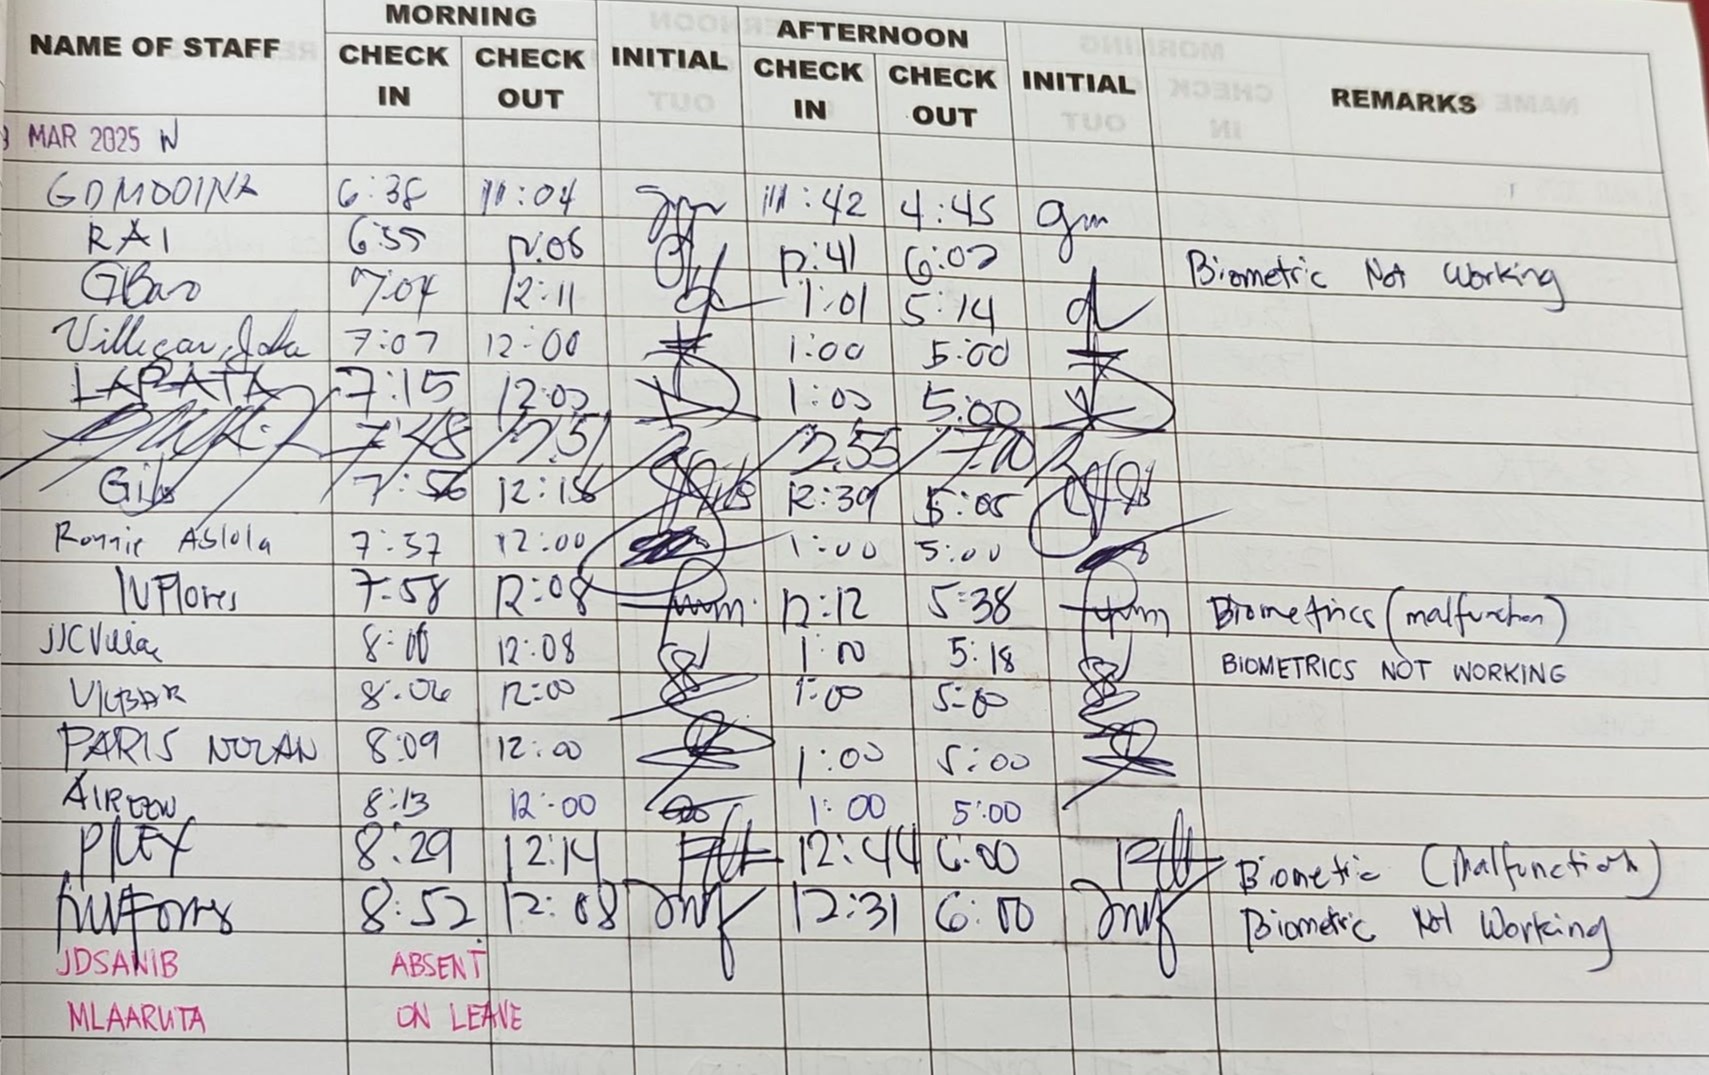 MORNING AFTERNOON
NAME OF STAFF CHECK IN CHECK OUT INITIAL CHECK IN CHECK OUT INITIAL REMARKS
MAR 2025 W
GDMODINA 6:38 11:04 gm 11:42 4:45 gm
RAI 6:55 12:06 12:41 6:02 Biometric Not Working
GBao 7:04 12:11 1:01 5:14
7:07 12:00 1:00 5:00
LAPATA 7:15 12:00 1:00 5:00
7:48 12:51 12:55
7:56 12:18 12:39 5:05
Ronnie Aslola 7:57 12:00 1:00 5:00
IVFlores 7:58 12:08 12:12 5:38 Biometrics (malfunction)
JJCVillar 8:00 12:08 1:00 5:18 BIOMETRICS NOT WORKING
8:06 12:00 1:00 5:00
PARIS NOLAN 8:09 12:00 1:00 5:00
8:13 12:00 1:00 5:00
8:29 12:14 12:44 6:00 Biometric (Malfunction)
8:52 12:08 12:31 6:00 Biometric Not Working
JDSANIB ABSENT
MLAARUTA ON LEAVE